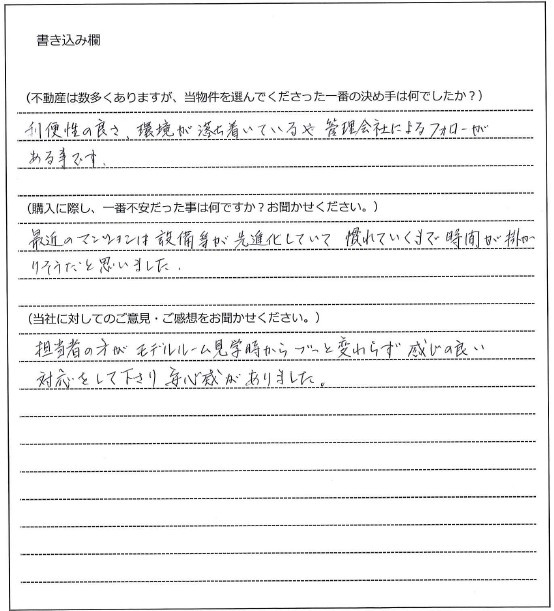 書き込み欄
(不動産は数多くありますが、当物件を選んでくださった一番の決め手は何でしたか?)
利便性の良さ、環境が落ち着いているや 管理会社によるフォローが
ある事です.
(購入に際し、一番不安だった事は何ですか?お聞かせください。)
最近のマンションは 設備等が先進化していて 慣れていくまで 時間が掛か
りそうだと思いました.
(当社に対してのご意見・ご感想をお聞かせください。)
担当者の方が モデルルーム見学時から ずっと変わらず 感じの良い
対応をして下さり 安心感がありました。